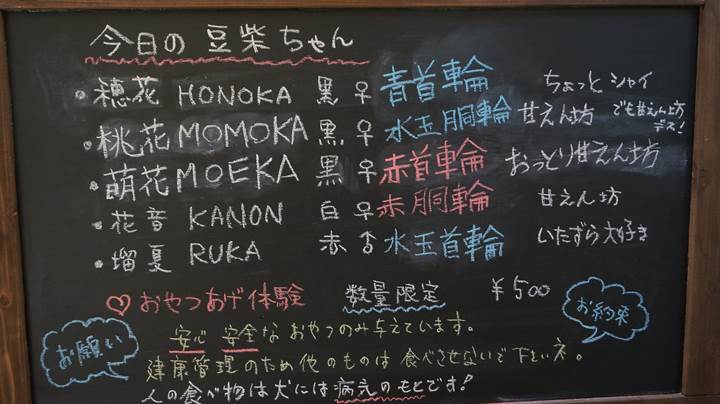 今日の豆柴ちゃん
・穂花 HONOKA 黒 ♀ 青首輪 ちょっとシャイ でも甘えん坊デス!
・桃花 MOMOKA 黒 ♀ 水玉胴輪 甘えん坊
・萌花 MOEKA 黒 ♀ 赤首輪 おっとり甘えん坊
・花音 KANON 白 ♀ 赤胴輪 甘えん坊
・瑠夏 RUKA 赤 ♂ 水玉首輪 いたずら大好き
♡おやつあげ体験 数量限定 ¥500
お願い お約束
安心安全なおやつのみ与えています。
健康管理のため他のものは食べさせないで下さいネ。
人の食べ物は犬には病気のもとです!